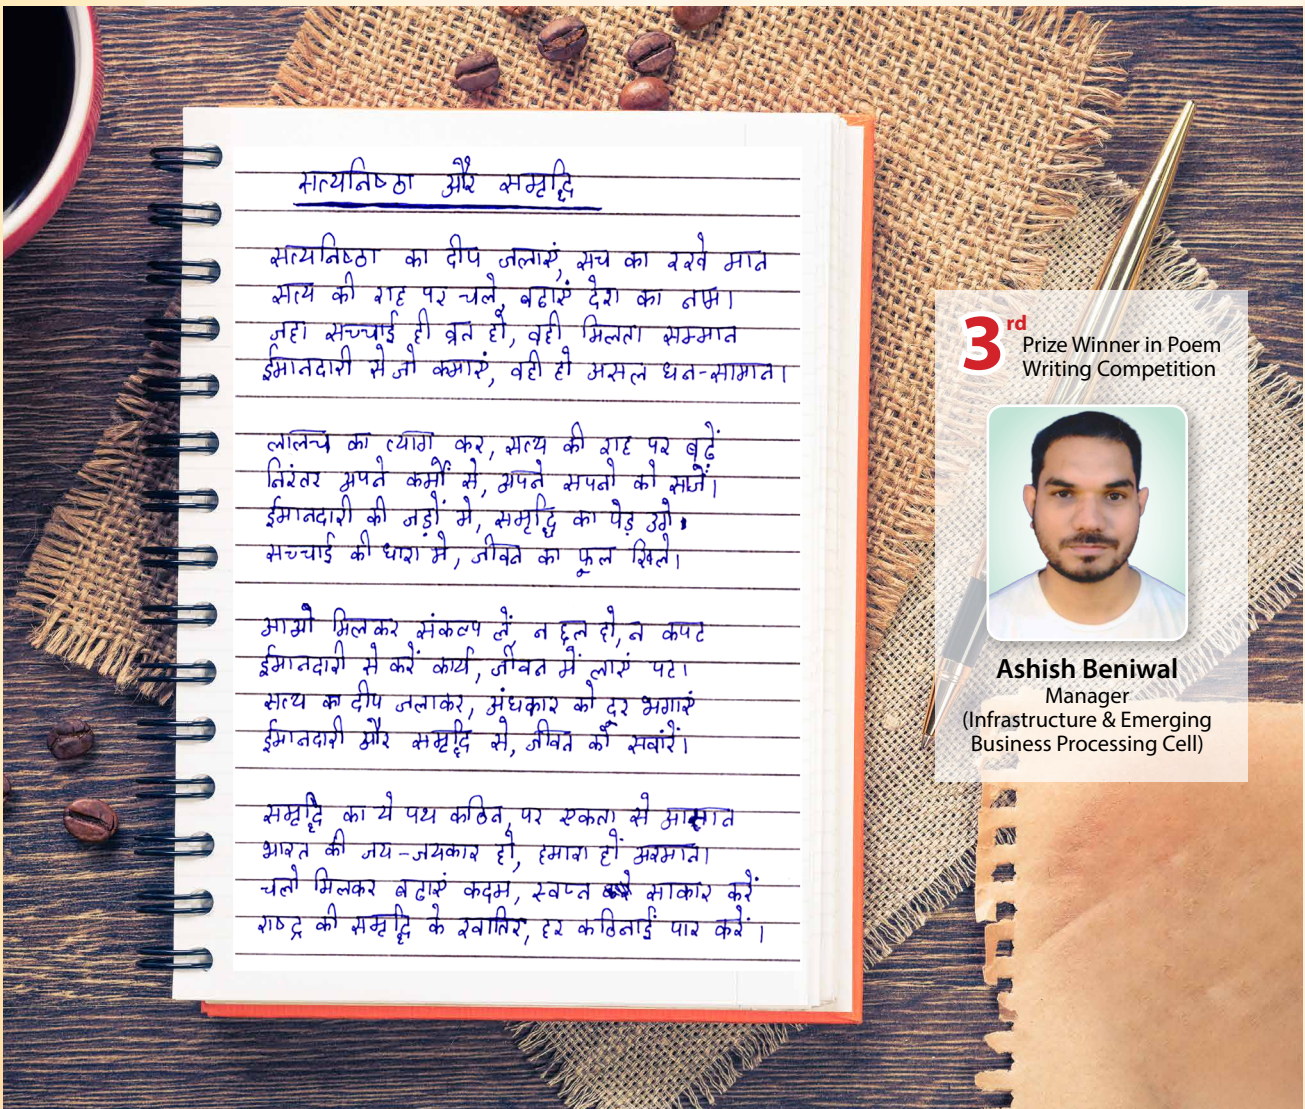 सत्यनिष्ठा और समृद्धि
सत्यनिष्ठा का दीप जलाएं, सच का रखे मान
सत्य की राह पर चले, बढाएं देश का नाम।
जहा सच्चाई ही व्रत हो, वही मिलता सम्मान
ईमानदारी से जो कमाएं, वही हो असल धन-सामान।
लालच का त्याग कर, सत्य की राह पर बढ़ें
निरंतर अपने कर्मों से, अपने सपनो को सजें।
ईमानदारी की जड़ों मे, समृद्धि का पेड़ उगे।
सच्चाई की धारा मे, जीवन का फूल खिले।
आओ मिलकर संकल्प लें, न छल हो, न कपट
ईमानदारी से करें कार्य, जीवन में लाएं पट।
सत्य का दीप जलाकर, अंधकार को दूर भगाएं
ईमानदारी और समृद्धि से, जीवन को सवांरें।
समृद्धि का ये पथ कठिन, पर एकता से आसान
भारत की जय-जयकार हो, हमारा हो अरमान।
चलो मिलकर बढाएं कदम, स्वप्न साकार करें
राष्ट्र की समृद्धि के खातिर, हर कठिनाई पार करें।
3rd
Prize Winner in Poem
Writing Competition
Ashish Beniwal
Manager
(Infrastructure & Emerging
Business Processing Cell)